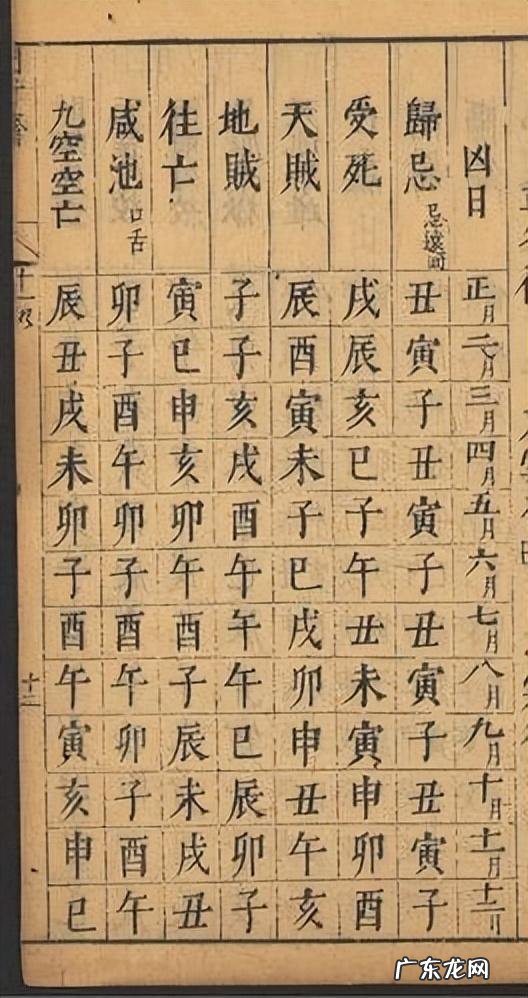 凶日 正月 二月 三月 四月 五月 六月 七月 八月 九月 十月 十一月 十二月
歸忌 忌遠回 丑 寅 子 丑 寅 子 丑 寅 子 丑 寅 子
受死 戌 辰 亥 巳 子 午 丑 未 寅 申 卯 酉
天賊 辰 酉 寅 未 子 巳 戌 卯 申 丑 午 亥
地賊 子 子 亥 戌 酉 午 午 午 巳 辰 卯 子
往亡 寅 巳 申 亥 卯 午 酉 子 辰 未 戌 丑
咸池 口舌 卯 子 酉 午 卯 子 酉 午 卯 子 酉 午
九空空亡 辰 丑 戌 未 卯 子 酉 午 寅 亥 申 巳
十二
广东龙网